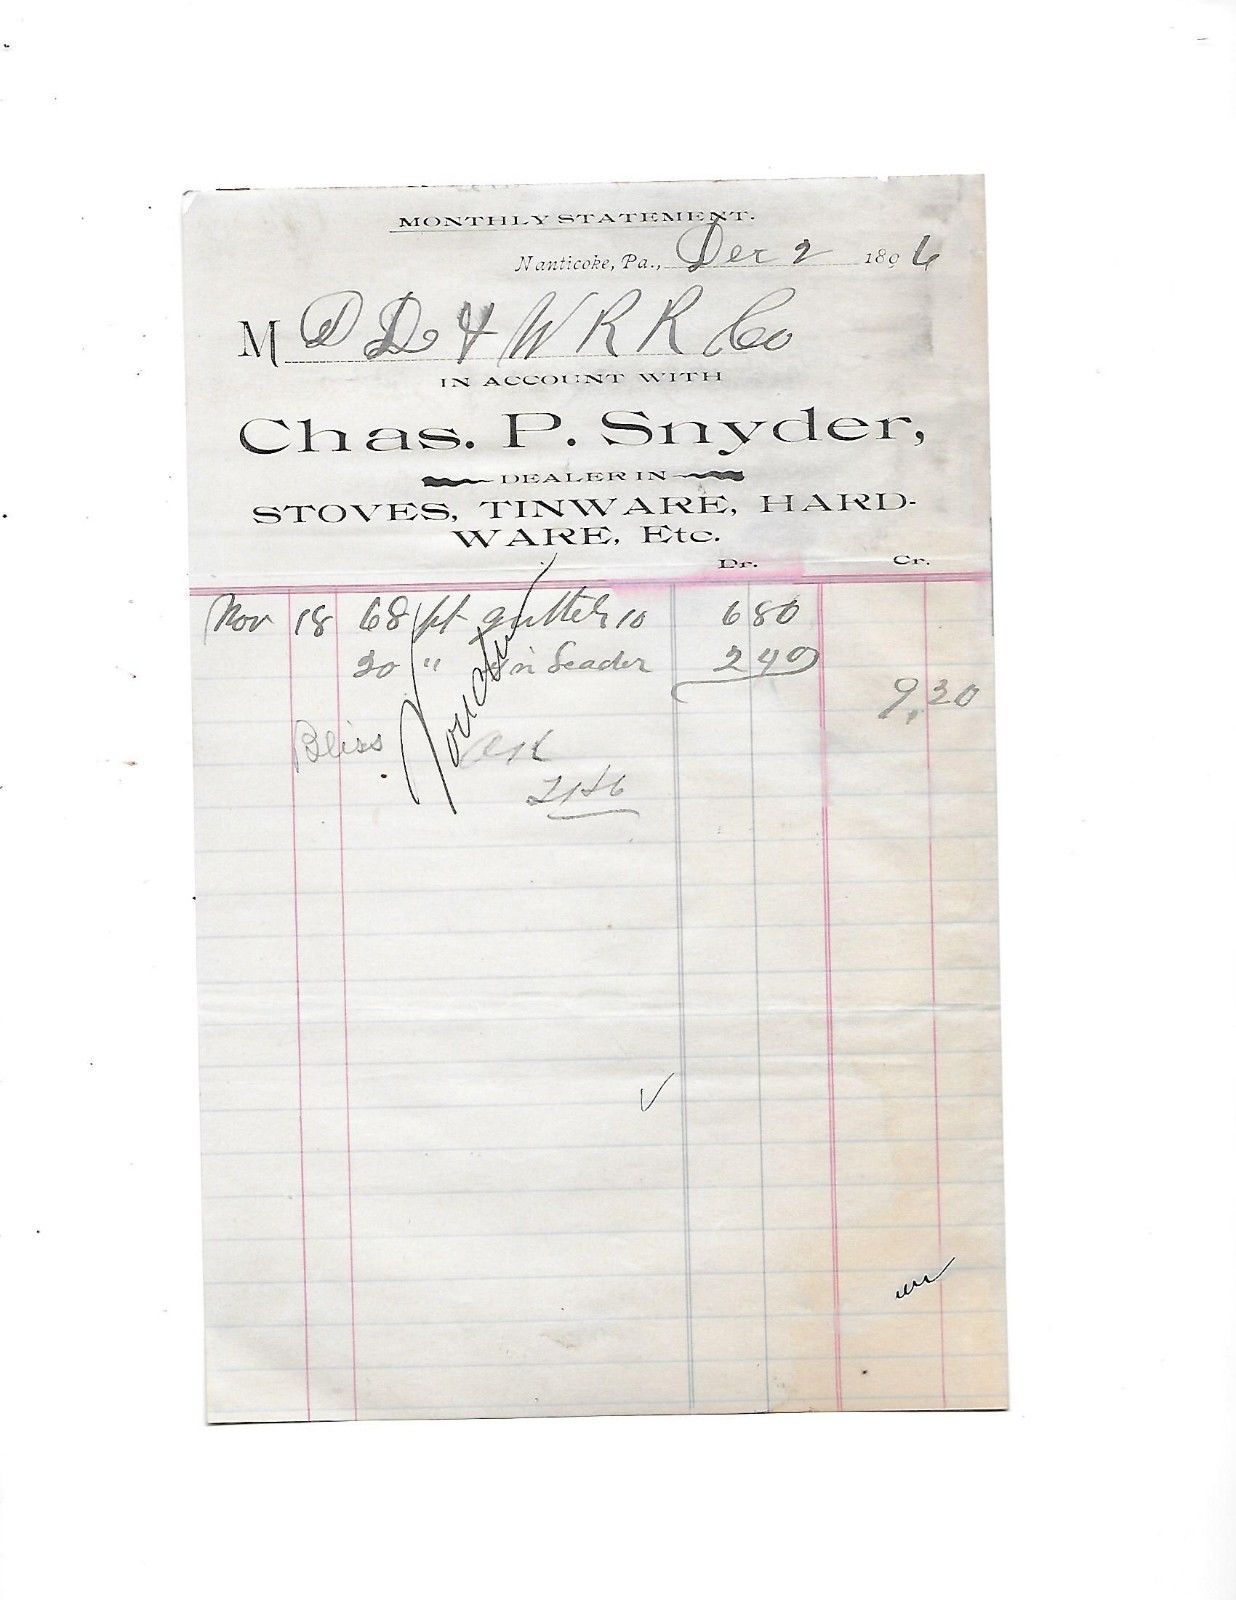 MONTHLY STATEMENT.
Nanticoke, Pa., Dec 2 1896
M D L & W R R Co
IN ACCOUNT WITH
Chas. P. Snyder,
DEALER IN
STOVES, TINWARE, HARD-
WARE, Etc.
Dr. Cr.
Nov 18 68 ft gutter 10 6 80
20 " in Leader 2 40
9,20
Bliss